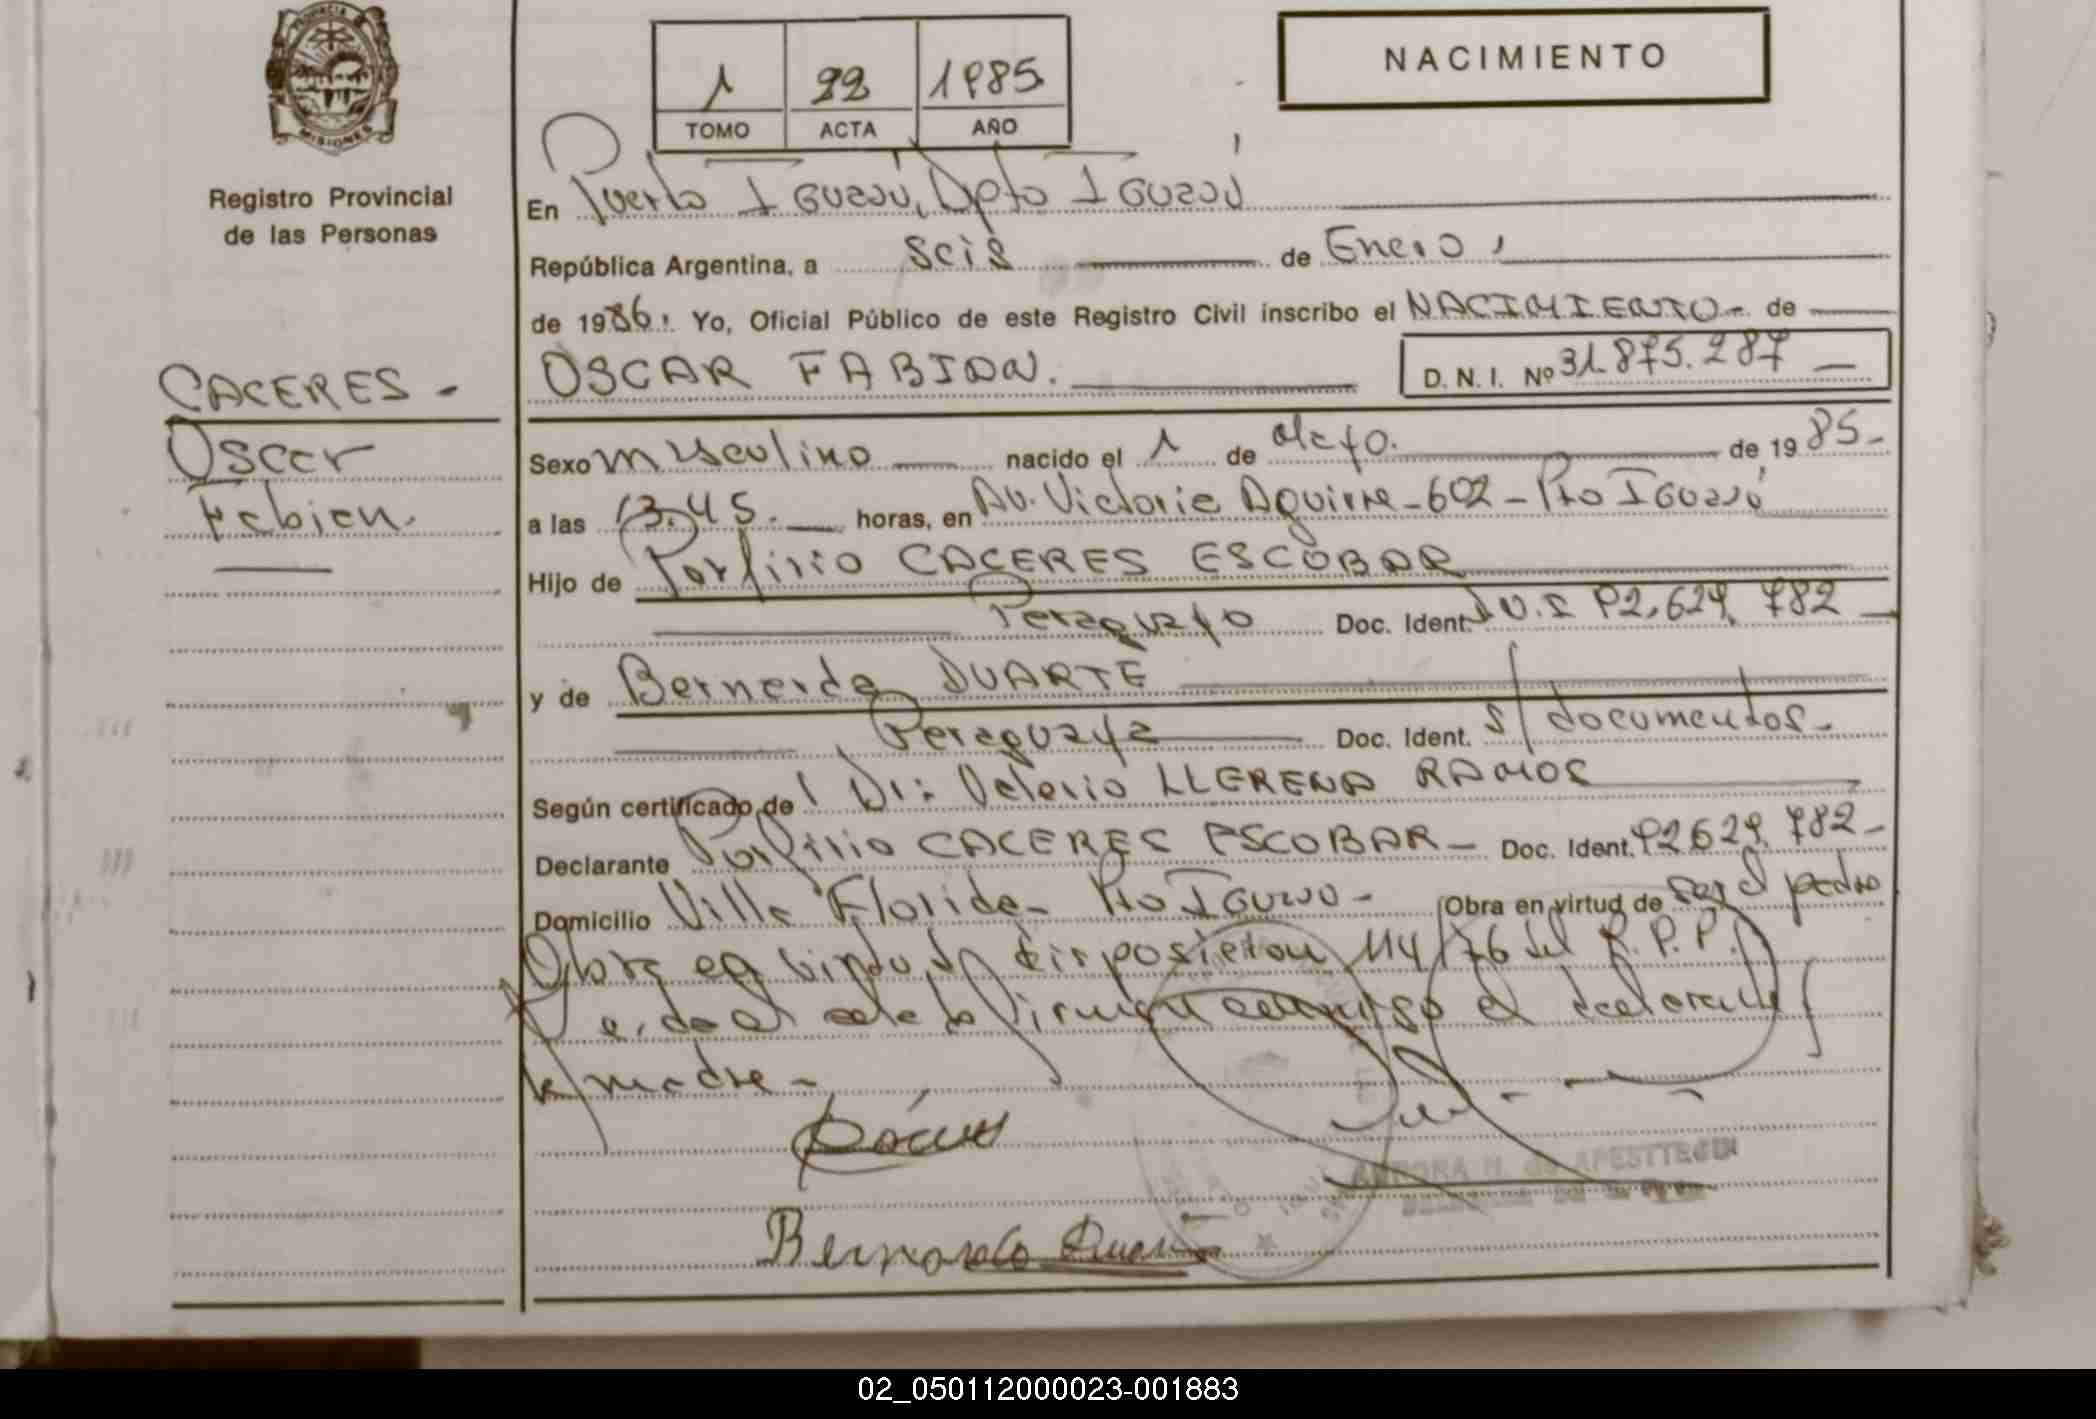 PROVINCIA DE
MISIONES
Registro Provincial
de las Personas
CACERES -
Oscar
Fabian.
1 22 1985
TOMO ACTA AÑO
NACIMIENTO
En Puerto Iguazú, Dpto Iguazú
República Argentina, a seis de Enero,
de 1986. Yo, Oficial Público de este Registro Civil inscribo el NACIMIENTO - de
OSCAR FABIAN. D. N. I. Nº 31.875.287
Sexo masculino nacido el 1 de Mayo. de 19 85-
a las 13.45. horas, en Av. Victoria Aguirre - 602 - Pto Iguazú
Hijo de Porfirio CACERES ESCOBAR
Paraguayo Doc. Ident. 92.629.782
y de Bernarda DUARTE
Paraguaya Doc. Ident. s/ documentos-
Según certificado de Dr: Valerio LLERENA RAMOS
Declarante Porfirio CACERES ESCOBAR - Doc. Ident. 92.629.782-
Domicilio Villa Florida - Pto Iguazú - Obra en virtud de ser el padre
Obra en virtud disposicion 114/76 del R.P.P.
Leida el acta la firman conmigo el declarante
la madre -
Bernarda Duarte
AURORA N. de APESTTEGUI
02_050112000023-001883